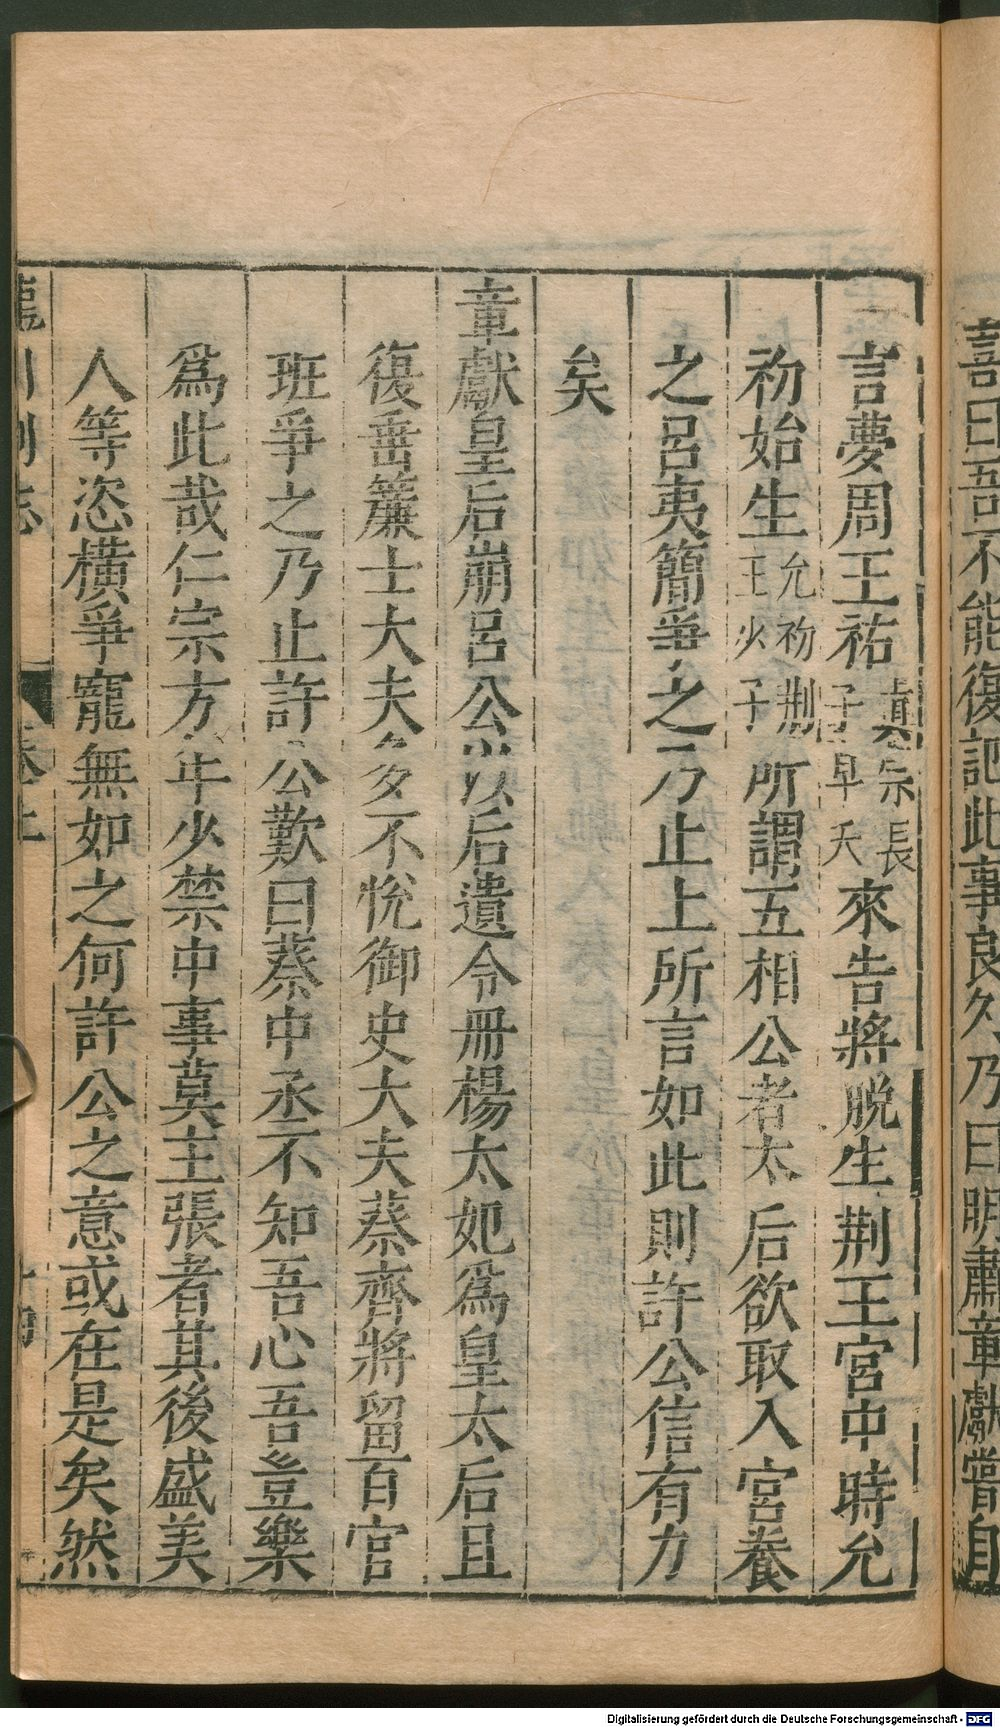 喜曰吾不能復記此事良久乃曰明肅章獻嘗自
言夢周王祐真宗長子早夭來告將脱生荆王宮中時允
初始生允初荆王少子所謂五相公者太后欲取入宮養
之呂夷簡爭之乃止上所言如此則許公信有力
矣
章獻皇后崩呂公以后遺令冊楊太妃爲皇太后且
復垂簾士大夫多不悅御史大夫蔡齊將留百官
班爭之乃止許公歎曰蔡中丞不知吾心吾豈樂
爲此哉仁宗方年少禁中事莫主張者其後盛美
人等恣橫爭寵無如之何許公之意或在是矣然
龍川別志
卷上
Digitalisierung gefördert durch die Deutsche Forschungsgemeinschaft - DFG